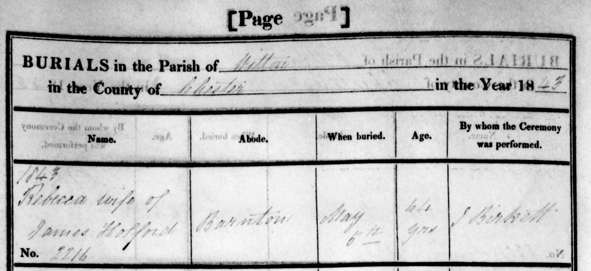 [Page ]
BURIALS in the Parish of Witton
in the County of Chester in the Year 1843
Name. Abode. When buried. Age. By whom the Ceremony was performed.
1843
Rebecca wife of
James Holford Barnton May 5th 64 yrs J Birkett
No. 2216